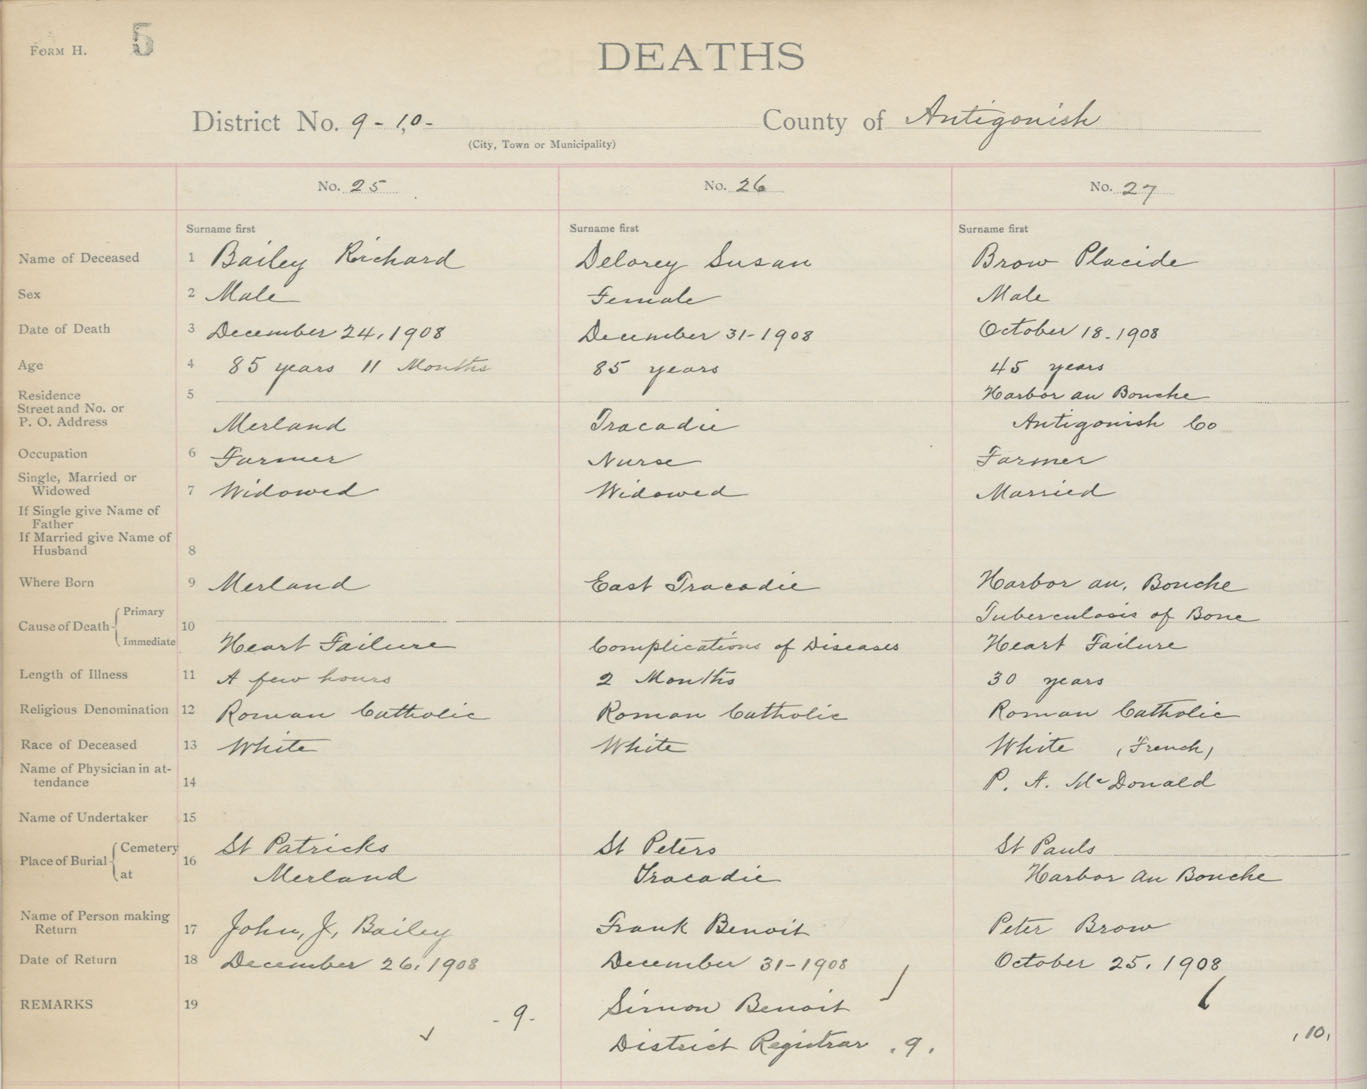 FORM H. 5
DEATHS
District No. 9-10- County of Antigonish
(City, Town or Municipality)
No. 25 No. 26 No. 27
Surname first Surname first Surname first
Name of Deceased 1 Bailey Richard Delorey Susan Brow Placide
Sex 2 Male Female Male
Date of Death 3 December 24, 1908 December 31-1908 October 18-1908
Age 4 85 years 11 Months 85 years 45 years
Residence 5 Harbor au Bouche
Street and No. or
P. O. Address Merland Tracadie Antigonish Co
Occupation 6 Farmer Nurse Farmer
Single, Married or
Widowed 7 Widowed Widowed Married
If Single give Name of
Father
If Married give Name of
Husband 8
Where Born 9 Merland East Tracadie Harbor au, Bouche
Primary Tuberculosis of Bone
Cause of Death 10
Immediate Heart Failure Complications of Diseases Heart Failure
Length of Illness 11 A few hours 2 Months 30 years
Religious Denomination 12 Roman Catholic Roman Catholic Roman Catholic
Race of Deceased 13 White White White (French)
Name of Physician in at-
tendance 14 P. A. McDonald
Name of Undertaker 15
Cemetery St Patricks St Peters St Pauls
Place of Burial 16
at Merland Tracadie Harbor au Bouche
Name of Person making
Return 17 John, J, Bailey Frank Benoit Peter Brow
Date of Return 18 December 26, 1908 December 31-1908 October 25, 1908
REMARKS 19 Simon Benoit
-9- District Registrar .9. ,10,